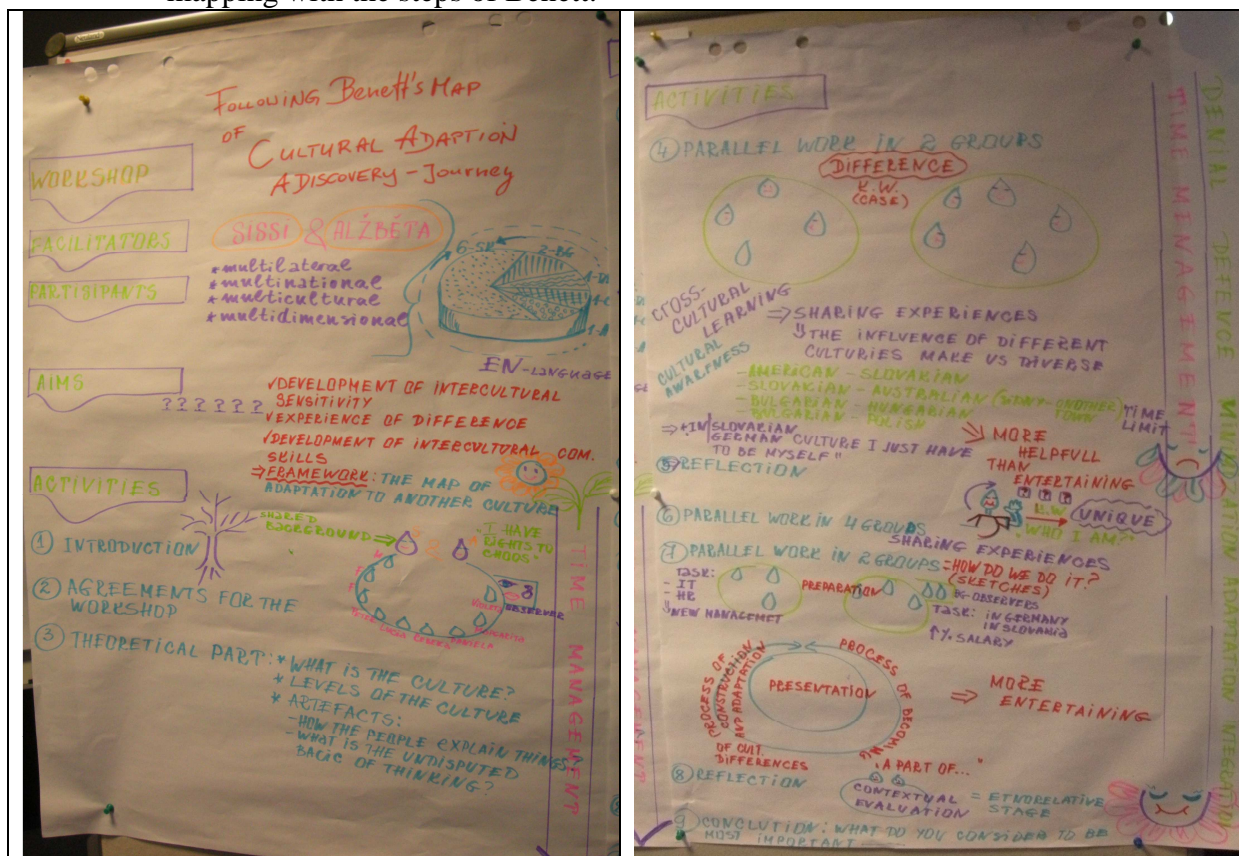 mapping with the steps of Benett.
FOLLOWING Benett's MAP
OF
CULTURAL ADAPTION
A DISCOVERY - Journey
WORKSHOP
FACILITATORS
SISSI & ALŽBÉTA
PARTISIPANTS
* multilateral
* multinational
* multicultural
* multidimensional
6-SK
2-BG
1-A
EN-LANGUAGE
AIMS
??????
✓DEVELOPMENT OF INTERCULTURAL
SENSITIVITY
✓EXPERIENCE OF DIFFERENCE
✓DEVELOPMENT OF INTERCULTURAL COM.
SKILLS
⇒FRAMEWORK: THE MAP OF
ADAPTATION TO ANOTHER CULTURE
ACTIVITIES
SHARED
BACKGROUND ⇒
&
"I HAVE
RIGHTS TO
CHOOS"
OBSERVER
VIOLETA
MARGARITA
DANIELA
REBEKA
LUCIA
PETER
① INTRODUCTION
② AGREEMENTS FOR THE
WORKSHOP
③ THEORETICAL PART: * WHAT IS THE CULTURE?
* LEVELS OF THE CULTURE
* ARTEFACTS:
- HOW THE PEOPLE EXPLAIN THINGS?
- WHAT IS THE UNDISPUTED
BASIC OF THINKING?
TIME MANAGEMENT
ACTIVITIES
④ PARALLEL WORK IN 2 GROUPS
DIFFERENCE
K.W.
(CASE)
CROSS-
CULTURAL
LEARNING
⇒ SHARING EXPERIENCES
THE INFLUENCE OF DIFFERENT
CULTURIES MAKE US DIVERSE
CULTURAL
AWARNESS
- AMERICAN - SLOVAKIAN
- SLOVAKIAN - AUSTRALIAN
- BULGARIAN - HUNGARIAN
- BULGARIAN - POLISH
TOWN
TIME
LIMIT
⇒ "IN SLOVAKIAN
GERMAN CULTURE I JUST HAVE
TO BE MYSELF"
⇒ MORE
HELPFULL
THAN
ENTERTAINING
⑤ REFLECTION
⑥ PARALLEL WORK IN 4 GROUPS
???
K.W.
UNIQUE
"WHO I AM?"
SHARING EXPERIENCES
⑦ PARALLEL WORK IN 2 GROUPS = HOW DO WE DO IT?
(SKETCHES)
TASK:
- IT
- HR
NEW MANAGEMET
PREPARATION
BG-OBSERVERS
TASK: IN GERMANY
IN SLOVAKIA
↑% SALARY
PROCESS OF
CONSTRUCTION
AND ADAPTATION
OF CULT.
DIFFERENCES
PRESENTATION
PROCESS OF BECOMING
"A PART OF..."
⇒ MORE
ENTERTAINING
⑧ REFLECTION
CONTEXTUAL
EVALUATION
= ETNORELATIVE
STAGE
⑨ CONCLUTION: WHAT DO YOU CONSIDER TO BE
MOST IMPORTANT
TIME MINAGEMENT!
DENIAL DEFENCE MINIMIZATION ADAPTATION INTEGRATION